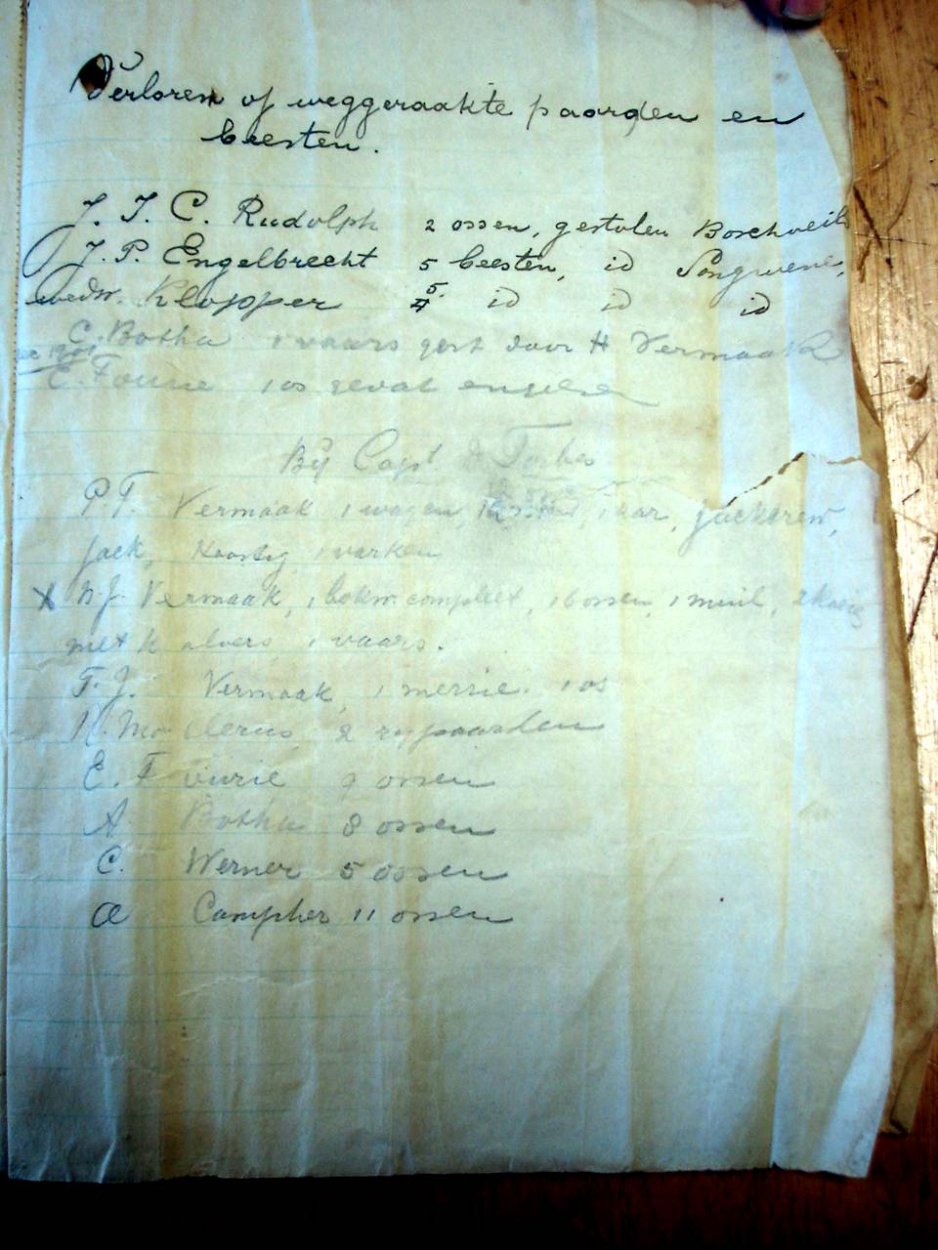 Verloren of weggeraakte paarden en
beesten.
J. J. C. Rudolph 2 ossen, gestolen
J. P. Engelbrecht 5 beesten, id
wedw. Klopper 5. id id id
C. Botha 1 vaars gest door H Vermaak
E. Fourie 1 os gevat engelsen
Bij Capt Forbes
P. T. Vermaak 1 wagen, 1 kar,
jack, 1 varken
X Vermaak, compleet, 16 ossen, 1 muil, 2 koeie
met kalvers, 1 vaars.
F. J. Vermaak, 1 merrie. 1 os
2 rypaarden
E. Fourie 9 ossen
A Botha 8 ossen
C. Werner 5 ossen
Campher 11 ossen